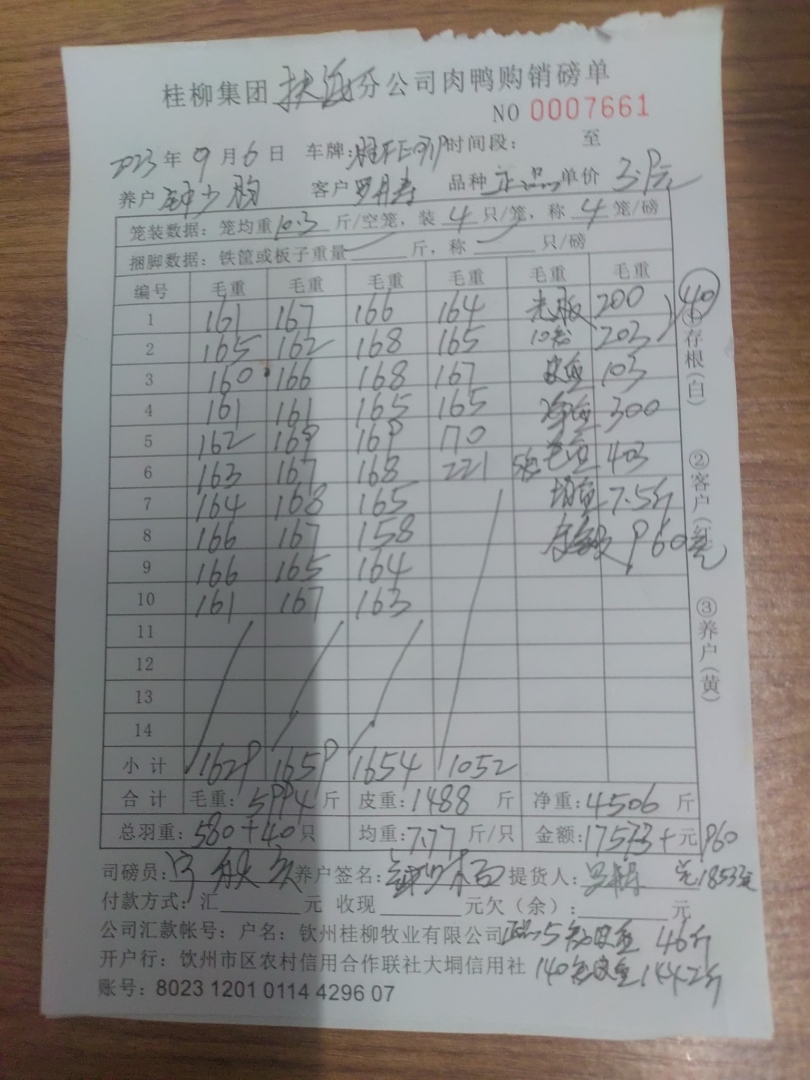 桂柳集团 扶绥分公司肉鸭购销磅单
NO 0007661
2023年9月6日 车牌: 时间段: 至
养户 钟少 客户 罗月寿 品种 正品 单价 3.9元
笼装数据:笼均重10.3斤/空笼,装4只/笼,称4笼/磅
捆脚数据:铁筐或板子重量 斤,称 只/磅
编号 毛重 毛重 毛重 毛重 毛重 毛重
1 161 167 166 164 光板 200 40
2 165 162 168 165 10包 203
3 160 166 168 167 皮重 103
4 161 161 165 165 净重 300
5 162 169 169 170 毛重 403
6 163 167 168 221 均重 7.5斤
7 164 168 165 960元
8 166 167 158
9 166 165 164
10 161 167 163
11
12
13
14
小计 1629 1659 1654 1052
合计 毛重:5994斤 皮重:1488斤 净重:4506斤
总羽重:580+40只 均重:7.77斤/只 金额:17573+元960
司磅员: 养户签名: 提货人: 18533元
付款方式:汇 元 收现 元欠(余): 元
公司汇款帐号:户名:钦州桂柳牧业有限公司 正品5 皮重 46斤
开户行:钦州市区农村信用合作联社大垌信用社 140 皮重1442斤
账号:8023 1201 0114 4296 07
①存根(白) ②客户(红) ③养户(黄)